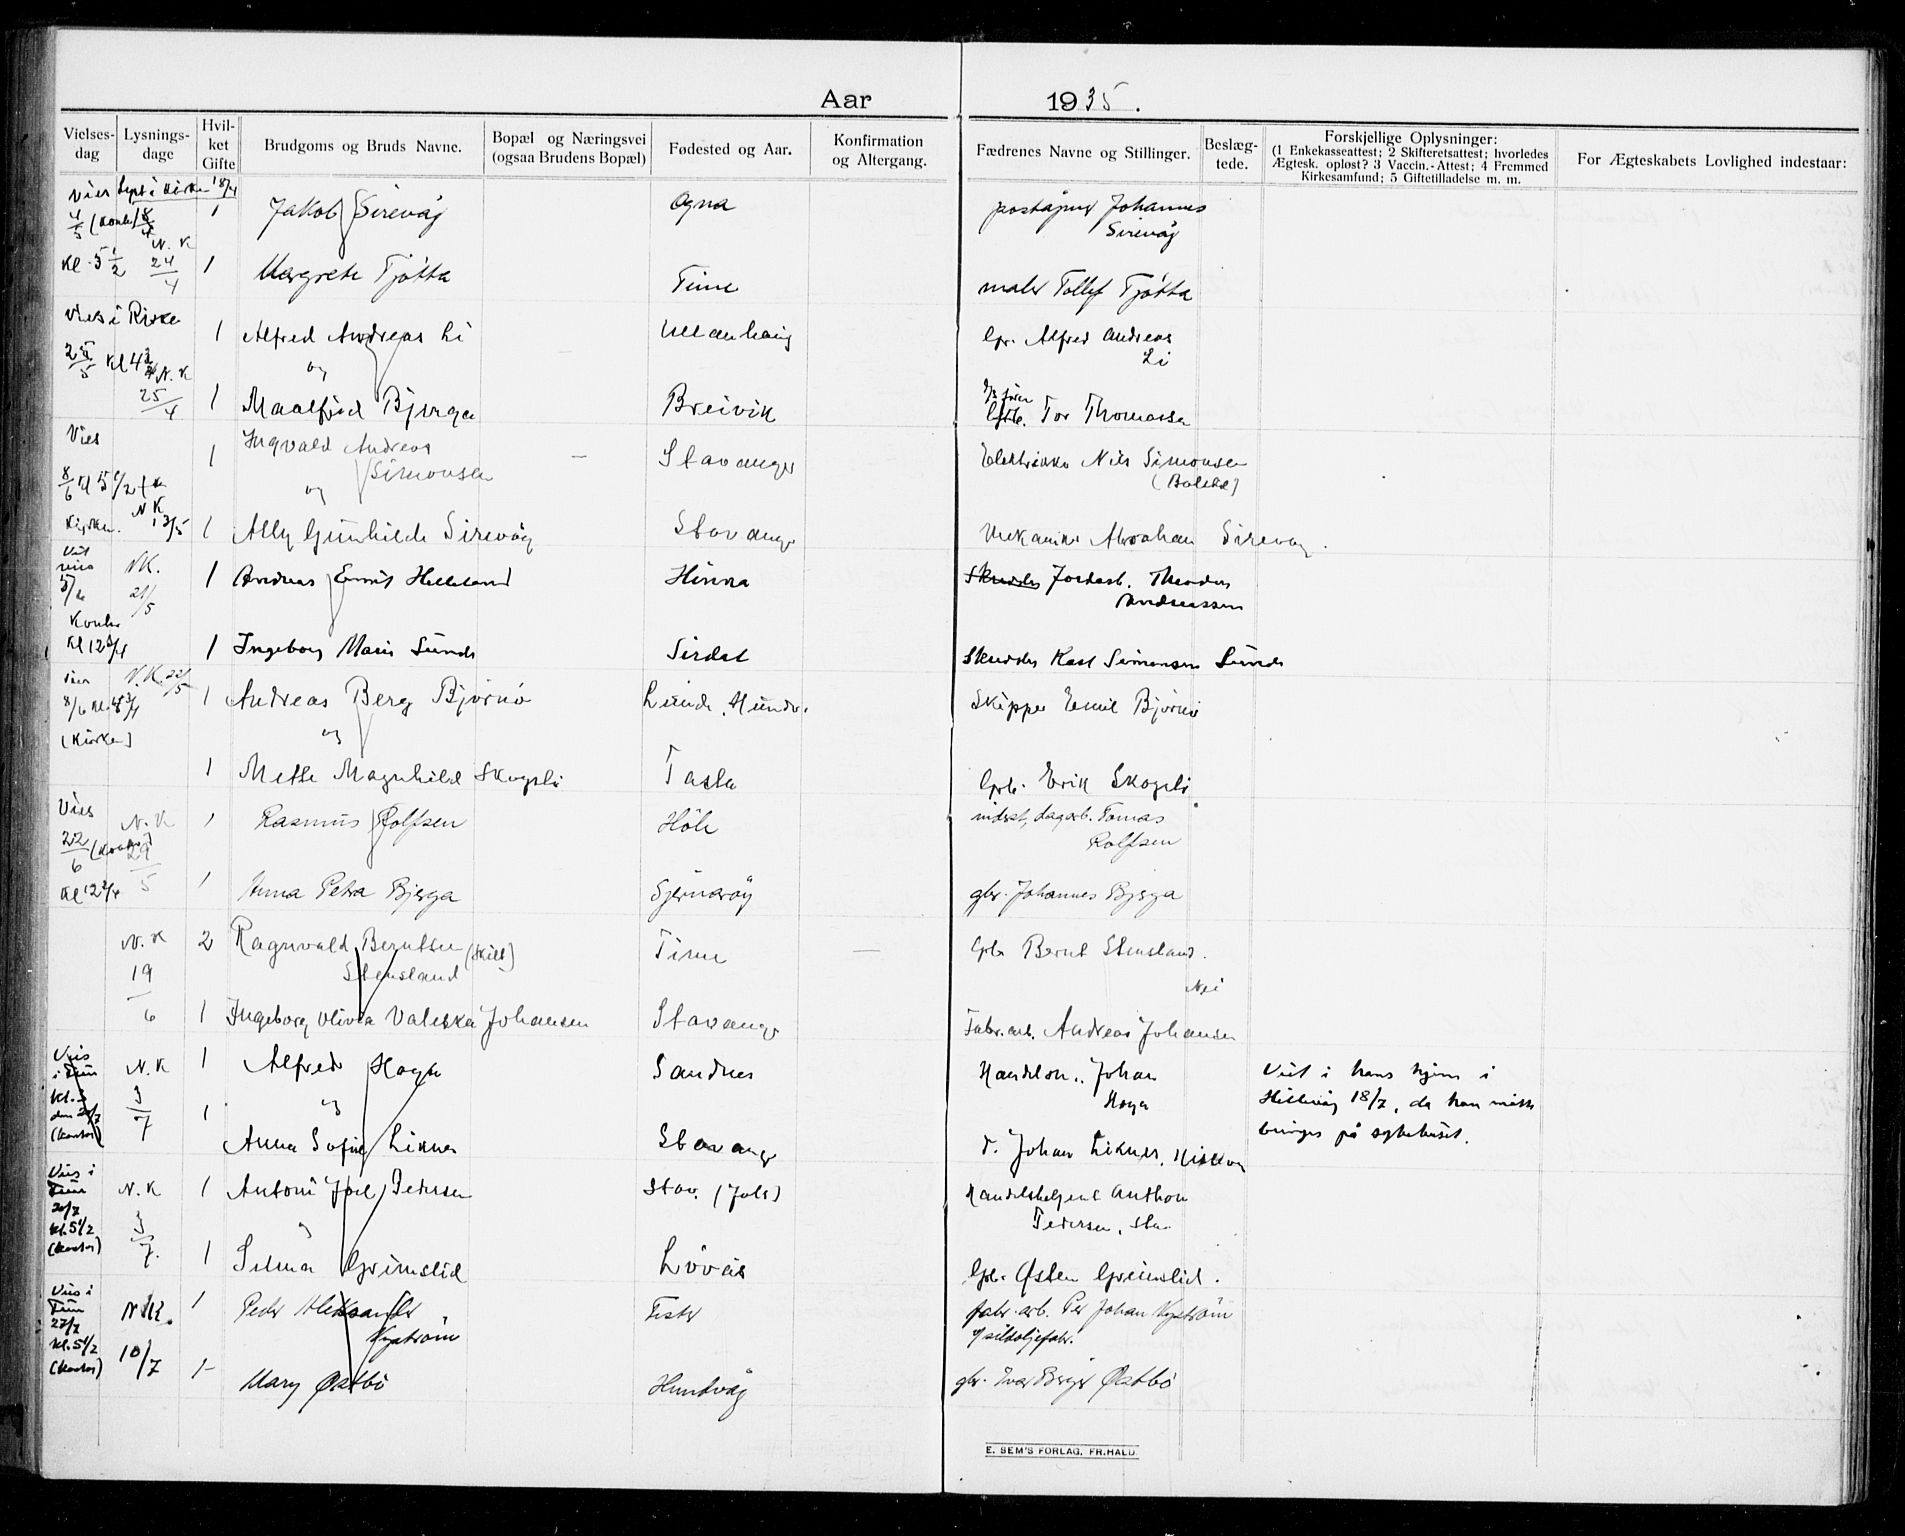 Aar 1935.
Vielses-dag
Lysnings-dage
Hvil-ket Gifte
Brudgoms og Bruds Navne.
Bopæl og Næringsvei (ogsaa Brudens Bopæl)
Fødested og Aar.
Konfirmation og Altergang.
Fædrenes Navne og Stillinger.
Beslæg-tede.
Forskjellige Oplysninger:
(1 Enkekasseattest; 2 Skifteretsattest; hvorledes
Ægtesk. opløst? 3 Vaccin.-Attest; 4 Fremmed
Kirkesamfund; 5 Giftetilladelse m. m.
For Ægteskabets Lovlighed indestaar:
Vies
4/5 1 Jakob Sirevåg Ogna poståpner Johannes
Sirevåg
N. K
Kl. 5 1/2 24/4 1 Margrete Tjøtta Time maler Tollef Tjøtta
Vies i Kirke 1 Alfred Andreas Li Ullanhaug Gr. Alfred Andreas
Li
25/5 Kl 4 3/4 N. K og
25/4 1 Maalfrid Bjerga Breivik Tor Thomassen
Vies 1 Ingvald Andreas
Simonsen — Stavanger Nils Simonsen
8/6 Kl 5 1/2 og
N K
Kirken. 13/5 1 Ally Gunhilde Sirevåg Stavanger Mekaniker Abraham Sirevåg.
NK. 1 Andreas Emil Helleland Hinna Jordarb. Theodor
Andreassen
21/5
Kontor
Kl 12 3/4 1 Ingeborg Marie Sunde Sirdal Skredder Karl Simonsen Sunde
N. K. 22/5 1 Andreas Berg Bjørnø Lunde, Hundv. Skipper Emil Bjørnø
8/6 og
(Kirken)
1 Mette Magnhild Skogsli Tasta Gbr. Erik Skogsli
Vies N. K 1 Rasmus Rolfsen Høle inderst, dagarb. Tomas
Rolfsen
22/6 29/5
Kl 12 3/4 1 Anna Petra Bjerga Sjernarøy gbr. Johannes Bjerga
N. K 2 Ragnvald Berntsen (skilt)
Stensland Time — Gbr Bernt Stensland.
19/6 Nei
1 Ingeborg Olivia Valeska Johansen Stavanger Fabr. arb. Andreas Johansen
Vies
i Tun N. K 1 Alfred Haga Sandnes Handelsm. Johan
Haga
Viet i hans hjem i
Hillevåg 18/7, da han måtte
bringes på sykehuset.
Kl. 5 3/7 og
den 20/7
(Kontor) 1 Anna Sofie Liknes Stavanger d. Johan Liknes, Hillevåg
Vies i
Tun N. K 1 Antoni Joel Pedersen Stav. (Joh) Handelsbetjent Anthon
Pedersen, Stav
20/7
kl. 5 1/2 3/7.
(Kontor) 1 Selma Grimslid Løvås Gbr. Østen Grimslid.
Vies i
Tun N. K. 1 Peder Aleksander
Nystrøm Fister fabr. arb. Per Johan Nystrøm
v/ sildoljefabr.
27/7
Kl. 5 1/2 10/7
(Kontor) 1 Mary Østbø Hundvåg gbr. Ivar Berger Østbø
E. SEM'S FORLAG, FR.HALD